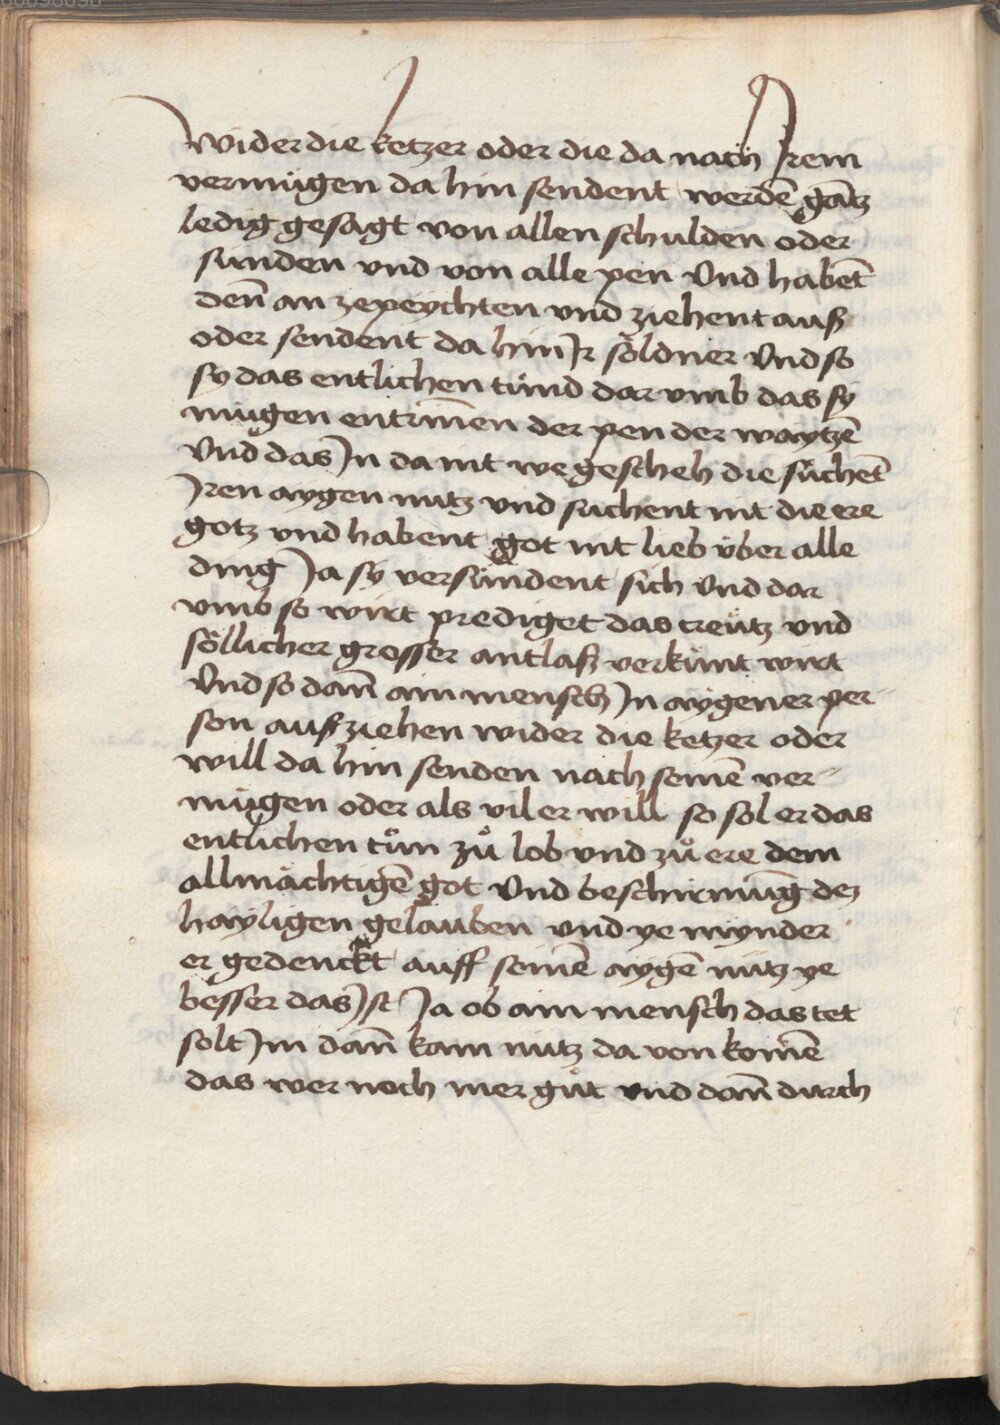 wider die ketzer oder die da nach Jrem
vermügen da hin sendent werdē gātz
ledig gesagt von allen schulden oder
sünden vnd von alle pen Vnd habēt
deñ an zepeychten vnd ziehent auß
oder sendent da hin Jr söldner Vnd so
sy das entlichen tůnd dar vmb das sy
mügen entriñen der pen der waytzē
Vnd das Jn da mit we gescheh die sůchet̄
Jren aygen nutz vnd suchent nit die ere
gotz vnd habent got nit lieb über alle
ding Ja sy versündent sich Vnd dar
vmb so wirt prediget das creütz vnd
söllicher grosser antlaß verkünt wirt
Vnd so dañ ain mensch Jn aygener per-
son auß ziehen wider die ketzer oder
will da hin senden nach seinē ver-
mügen oder als vil er will so sol er das
entlichen tůn zů lob vnd zů ere dem
allmächtigē got Vnd beschirmūg dez
hayligen gelauben vnd ye mynder
er gedenckt auff seinē aygē nutz ye
besser das Jst Ja ob ain mensch das tet
solt Jm dañ kain nutz da von komē
das wer noch mer gůt vnd dañ durch